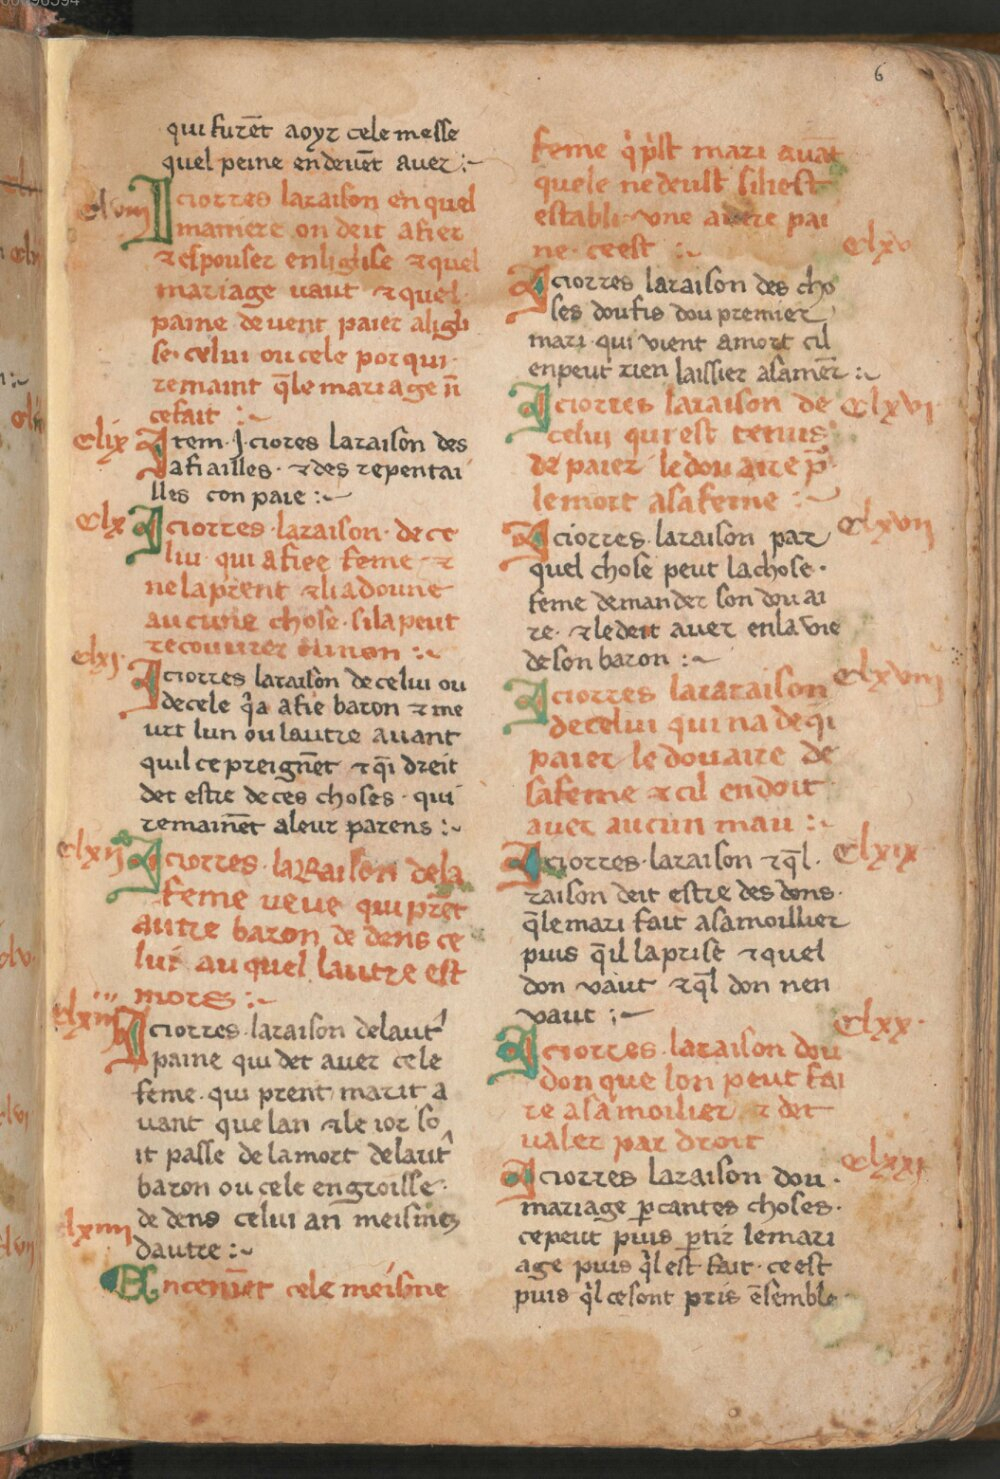 6
qui furēt aoyr cele messe
quel peine en deuēt auer :~
clviii
I ciorres la raison en quel
maniere on deit afier
⁊ espouser en liglise ⁊ quel
mariage uaut ⁊ quel
paine deuent paier aligli
se· celui ou cele por qui·
remaint q̄ le mariage n̄
ce fait :~
clix
Item· J ciores la raison des
afiailles· ⁊ des repentai
lles con paie :~
clx
I ciorres· la raison· de ce
lui· qui afiee feme ⁊
ne la prent ⁊ li a doune
aucune chose· sila peut
recouurer ou non :~
clxi·
I ciorres la raison de celui ou
de cele q̓ a afie baron ⁊ me
urt lun ou lautre auant
quil ce preignēt ⁊ q̄i dreit
det estre de ces choses · qui
remainēt a leur parens :~
clxii
I ciorres· la Raison de la
feme ueue qui prēt
autre baron de dens ce
lui au quel lautre est
mors :~
clxiii
I ciorres· la raison de laut̓
paine qui det auer cele
feme· qui prent marit a
uant que lan ⁊ le ior so
it passe de la mort de laut̓
baron ou cele engroisse·
de dens celui an meismes
dautre :~
clxiiii
Encemēt cele meisme
feme q̓ p̓st mari auāt
quele ne deust sili est
establi une autre pai
ne· ce est :~
clxv
I ciorres la raison des cho
ses dou fis dou premier
mari· qui vient a mort cil
en peut rien laissier a sa mer̄ :~
clxvi·
I ciorres la raison de
celui qui est tenus
de paier le douaire p̄
le mort a sa feme :~
clxvii
I ciorres· la raison par
quel chose peut la chose·
feme demander son douai
re· ⁊ le deit auer en la vie
de son baron :~
clxviii
I ciorres la raraison
de celui qui na de q̄i
paier le douaire de
sa feme ⁊ cil en doit
auer aucun mau :~
clxix
I ciorres· la raison ⁊ q̄l·
raison deit estre des dons·
q̄ le mari fait a sa moillier
puis q̄ il la prist ⁊ quel
don vaut ⁊ q̄l don nen
vaut :~
clxx·
I ciorres· la raison dou
don que lon peut fai
re a sa moilier ⁊ det
ualer par droit
clxxi
I ciorres la raison dou·
mariage ꝑ cantes choses·
ce peut puis ꝑtir le mari
age puis q̓l est fait· ce est
puis q̓l ce sont pris ēsemble